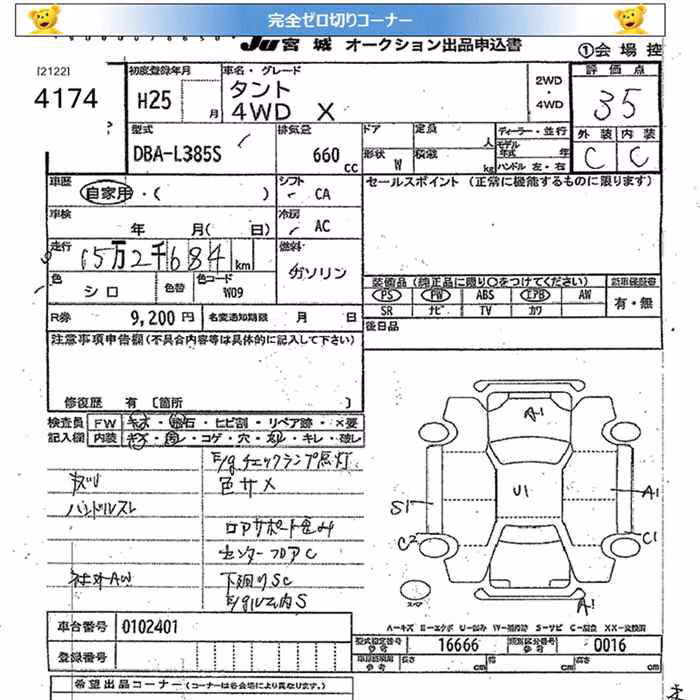 完全ゼロ切りコーナー
Ju 宮城 オークション出品申込書
①会場控
[2122]
4174
初度登録年月
H25
月
車名・グレード
タント
4WD X
2WD
・
4WD
評価点
35
外装 内装
C C
型式
DBA-L385S
排気量
660
cc
ドア
形状
W
定員
人
積載
kg
ディーラー・並行
モデル年式 年
ハンドル 左・右
車歴
自家用・( )
シフト
CA
セールスポイント (正常に機能するものに限ります)
車検
年 月( 日)
冷房
AC
走行
15万2千684km
燃料
ガソリン
色
シロ
色替
色コード
W09
装備品(純正品に限り○をつけてください)
新車保証書
PS PW ABS エアB AW
SR ナビ TV カワ
有・無
R券
9,200円
名変通知期限 月 日
後日品
注意事項申告欄(不具合内容等は具体的に記入して下さい)
修復歴 有 〔箇所 〕
検査員
記入欄
FW キズ・飛石・ヒビ割・リペア跡・×要
内装 キズ・汚レ・コゲ・穴・スレ・キレ・破レ
E/gチェックランプ点灯
色サメ
ハンドルスレ
ロアサポート凹み
センターフロアC
社外AW
下廻りSC
E/gルーム内S
A1
U1
S1
A1
C2
C1
スペア
A1
A−キズ E−エクボ U−凹み W−補修跡 S−サビ C−腐食 XX−交換済
車台番号
0102401
登録番号
型式指定番号
16666
類別区分番号
0016
長さ cm
幅 cm
高さ cm
希望出品コーナー(コーナーは各会場により異なります。)